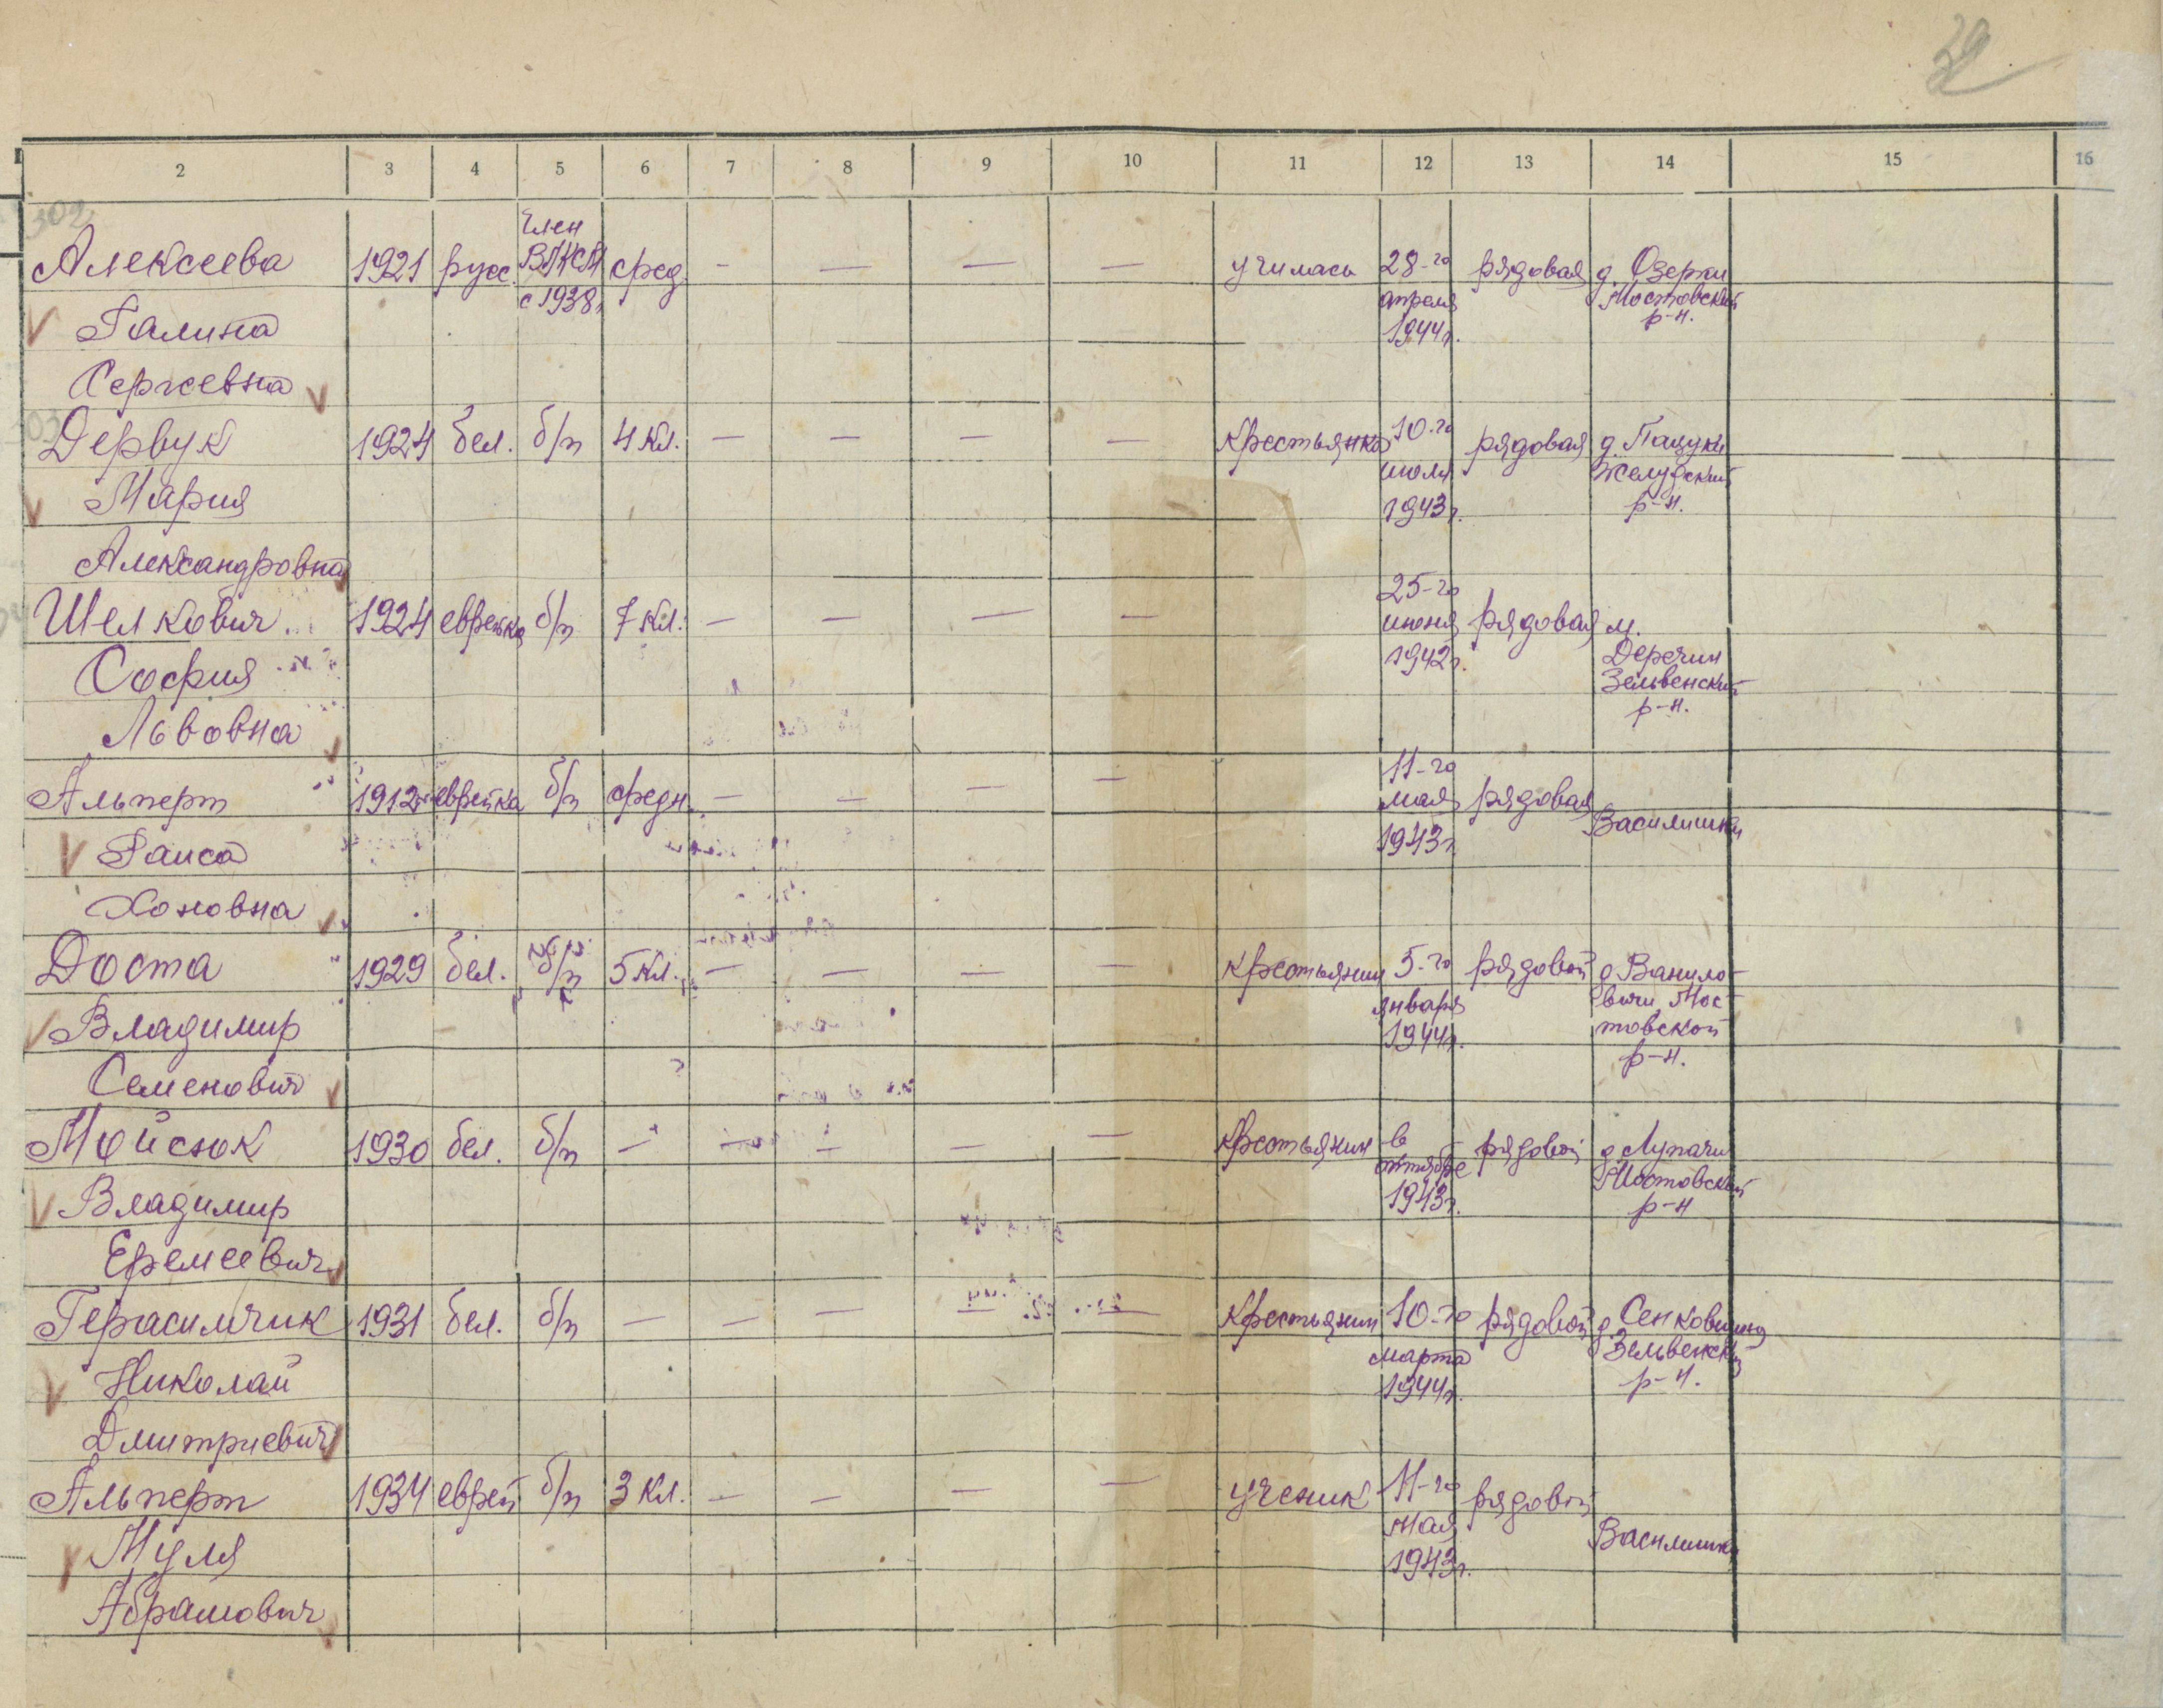 32
2 3 4 5 6 7 8 9 10 11 12 13 14 15 16
302
член
Алексеева 1921 русс. ВЛКСМ сред. - — — — училась 28-го рядовая д. Озерки
с 1938г. апреля Мостовский
Галина 1944г. р-н.
Сергеевна
Дервук 1924 бел. б/п 4 кл. — — — — крестьянка 10-го рядовая д. Пацуки
июля Желудский
Мария 1943г. р-н.
Александровна
25-го
Шелкович 1924 еврейка б/п 7 кл. — — — — июня рядовая м.
София 1942г. Деречин
Зельвенский
Львовна р-н.
11-го
Альперт 1912 еврейка б/п средн. — — — — мая рядовая
Василишки
Раиса 1943г.
Хоновна
Доста 1929 бел. б/п 5 кл. — — — — крестьянин 5-го рядовой д. Ванило-
января вичи, Мос-
Владимир 1944г. товской
Семенович р-н.
Мойсюк 1930 бел. б/п — — — — — крестьянин в рядовой д. Лупачи
октябре Мостовский
Владимир 1943г. р-н
Еремеевич
Герасимчик 1931 бел. б/п — — — — — крестьянин 10-го рядовой д. Сенковщина
марта Зельвенский
Николай 1944г. р-н.
Дмитриевич
Альперт 1934 еврей б/п 3 кл. — — — — ученик 11-го рядовой
мая Василишки
Муля 1943г.
Абрамович